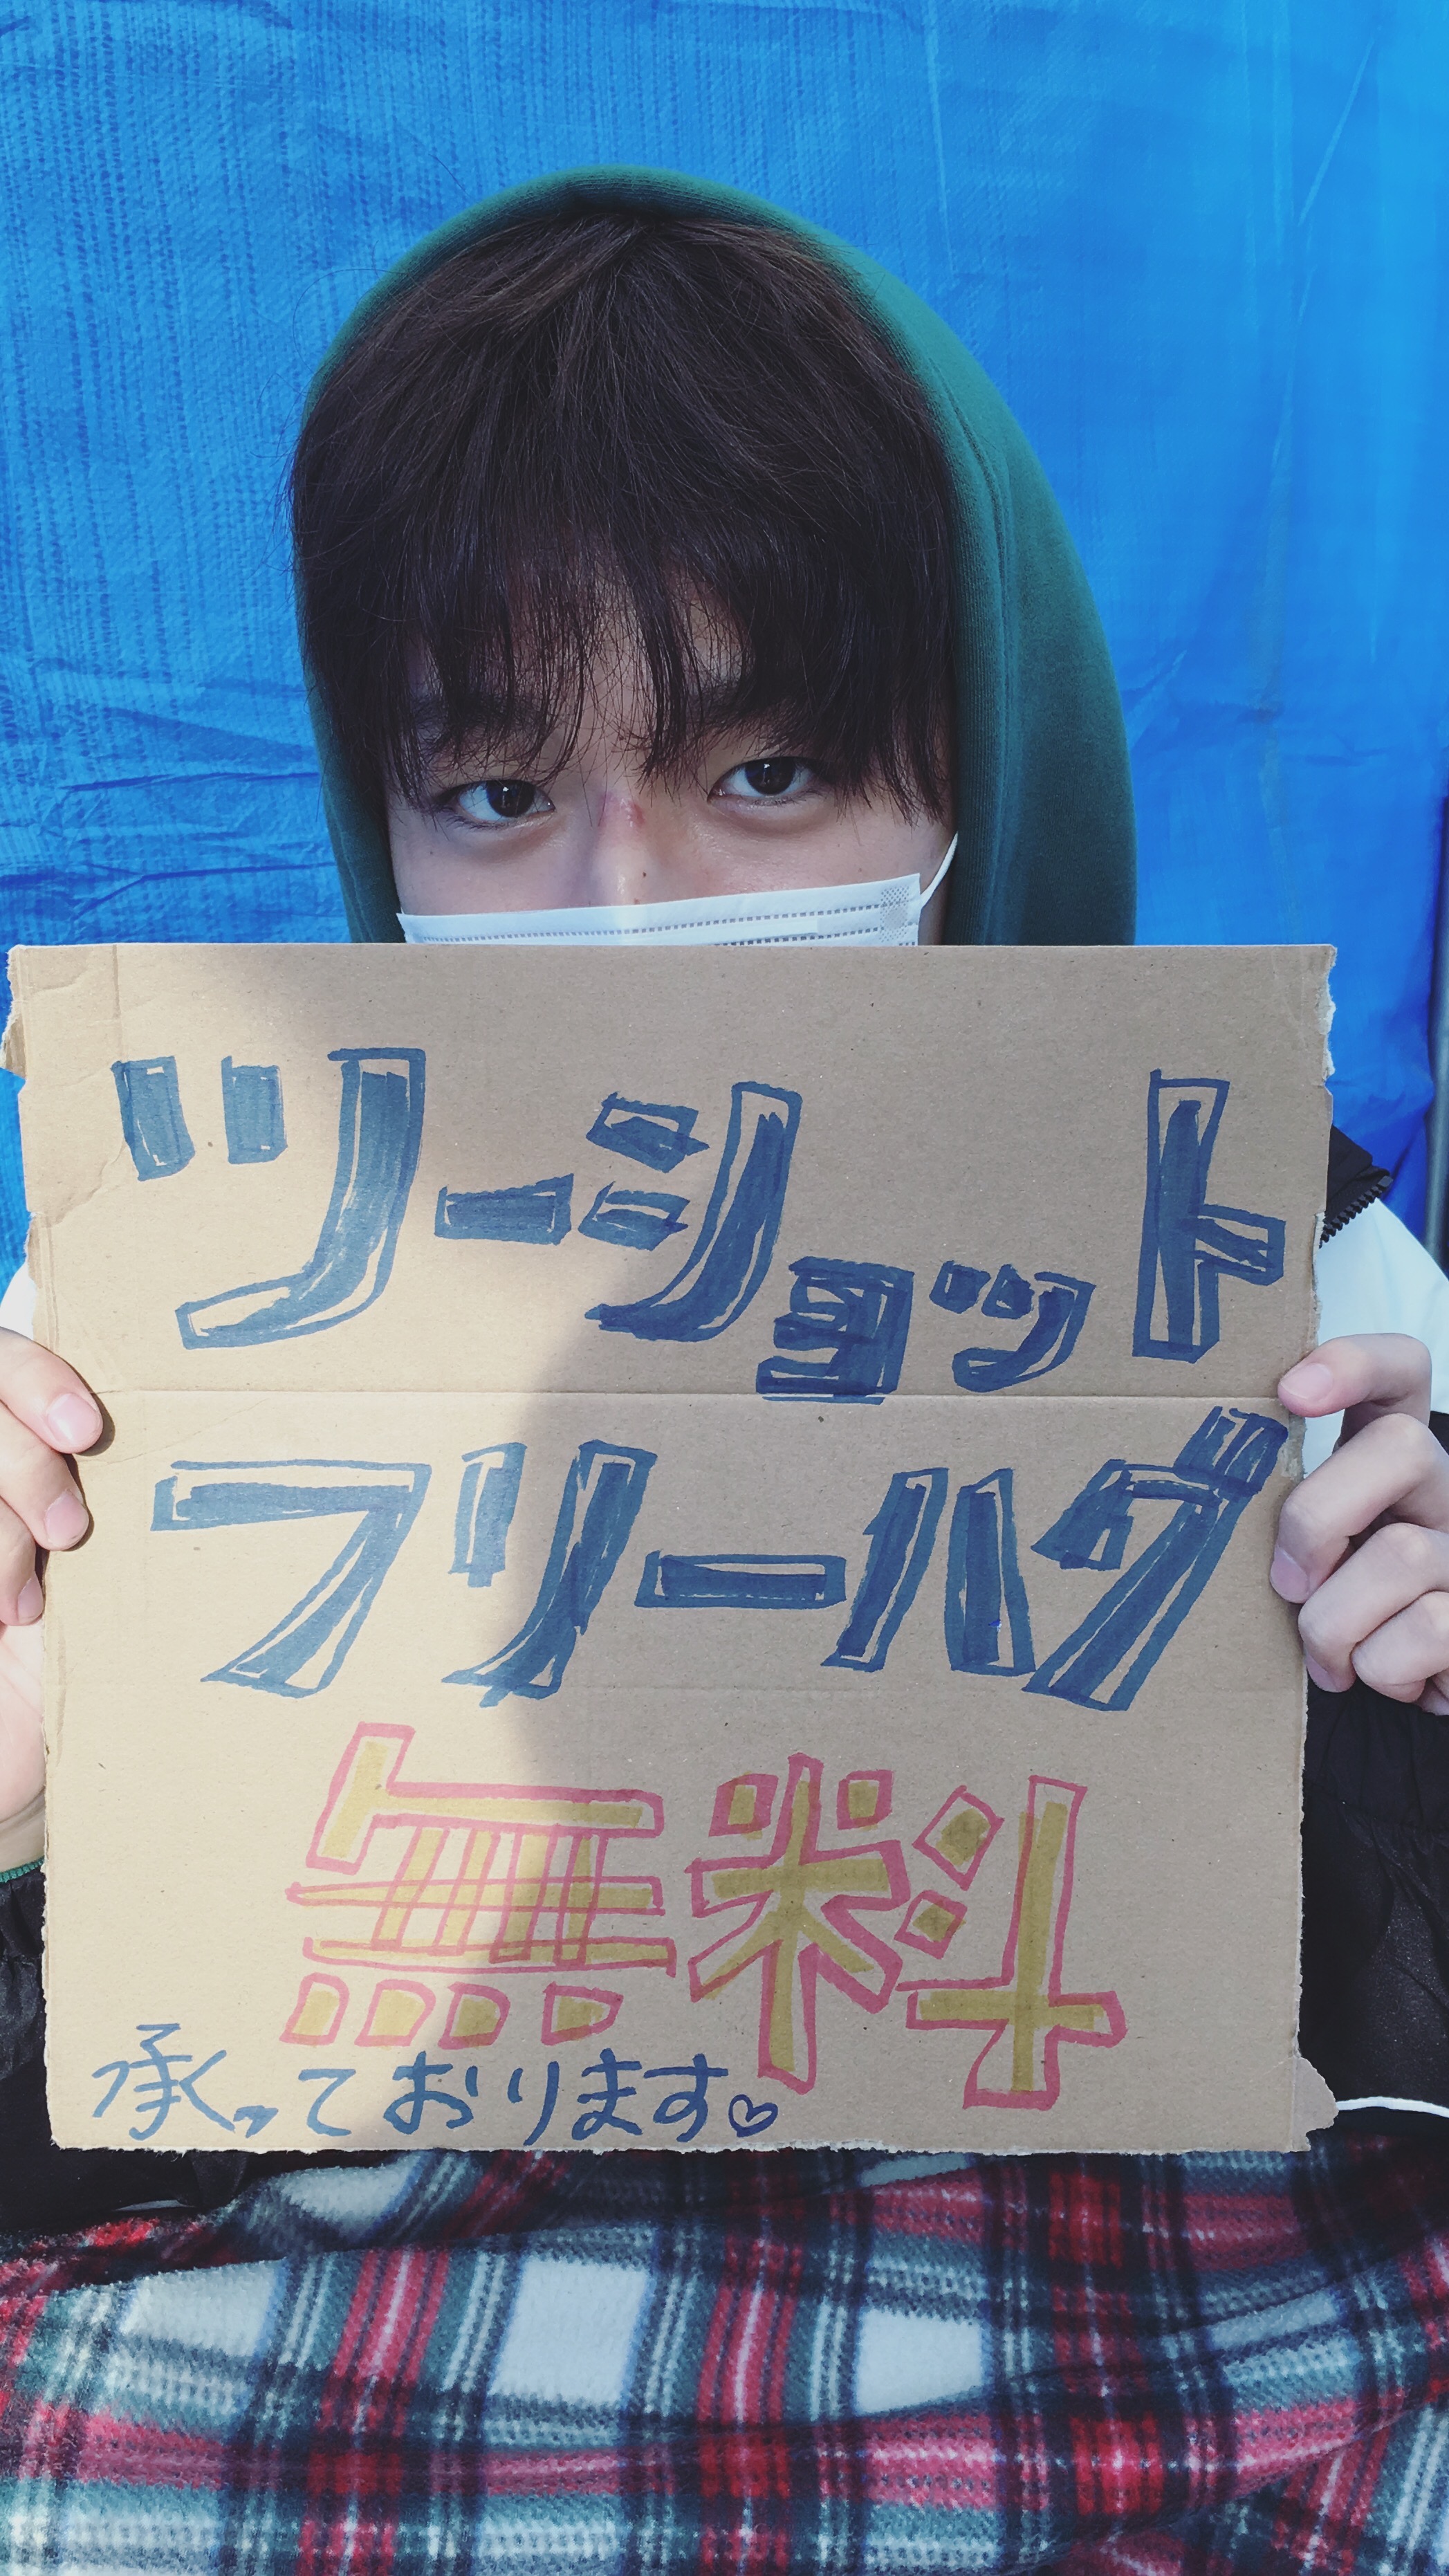 ツーショット
フリーハグ
無料
承っております♡